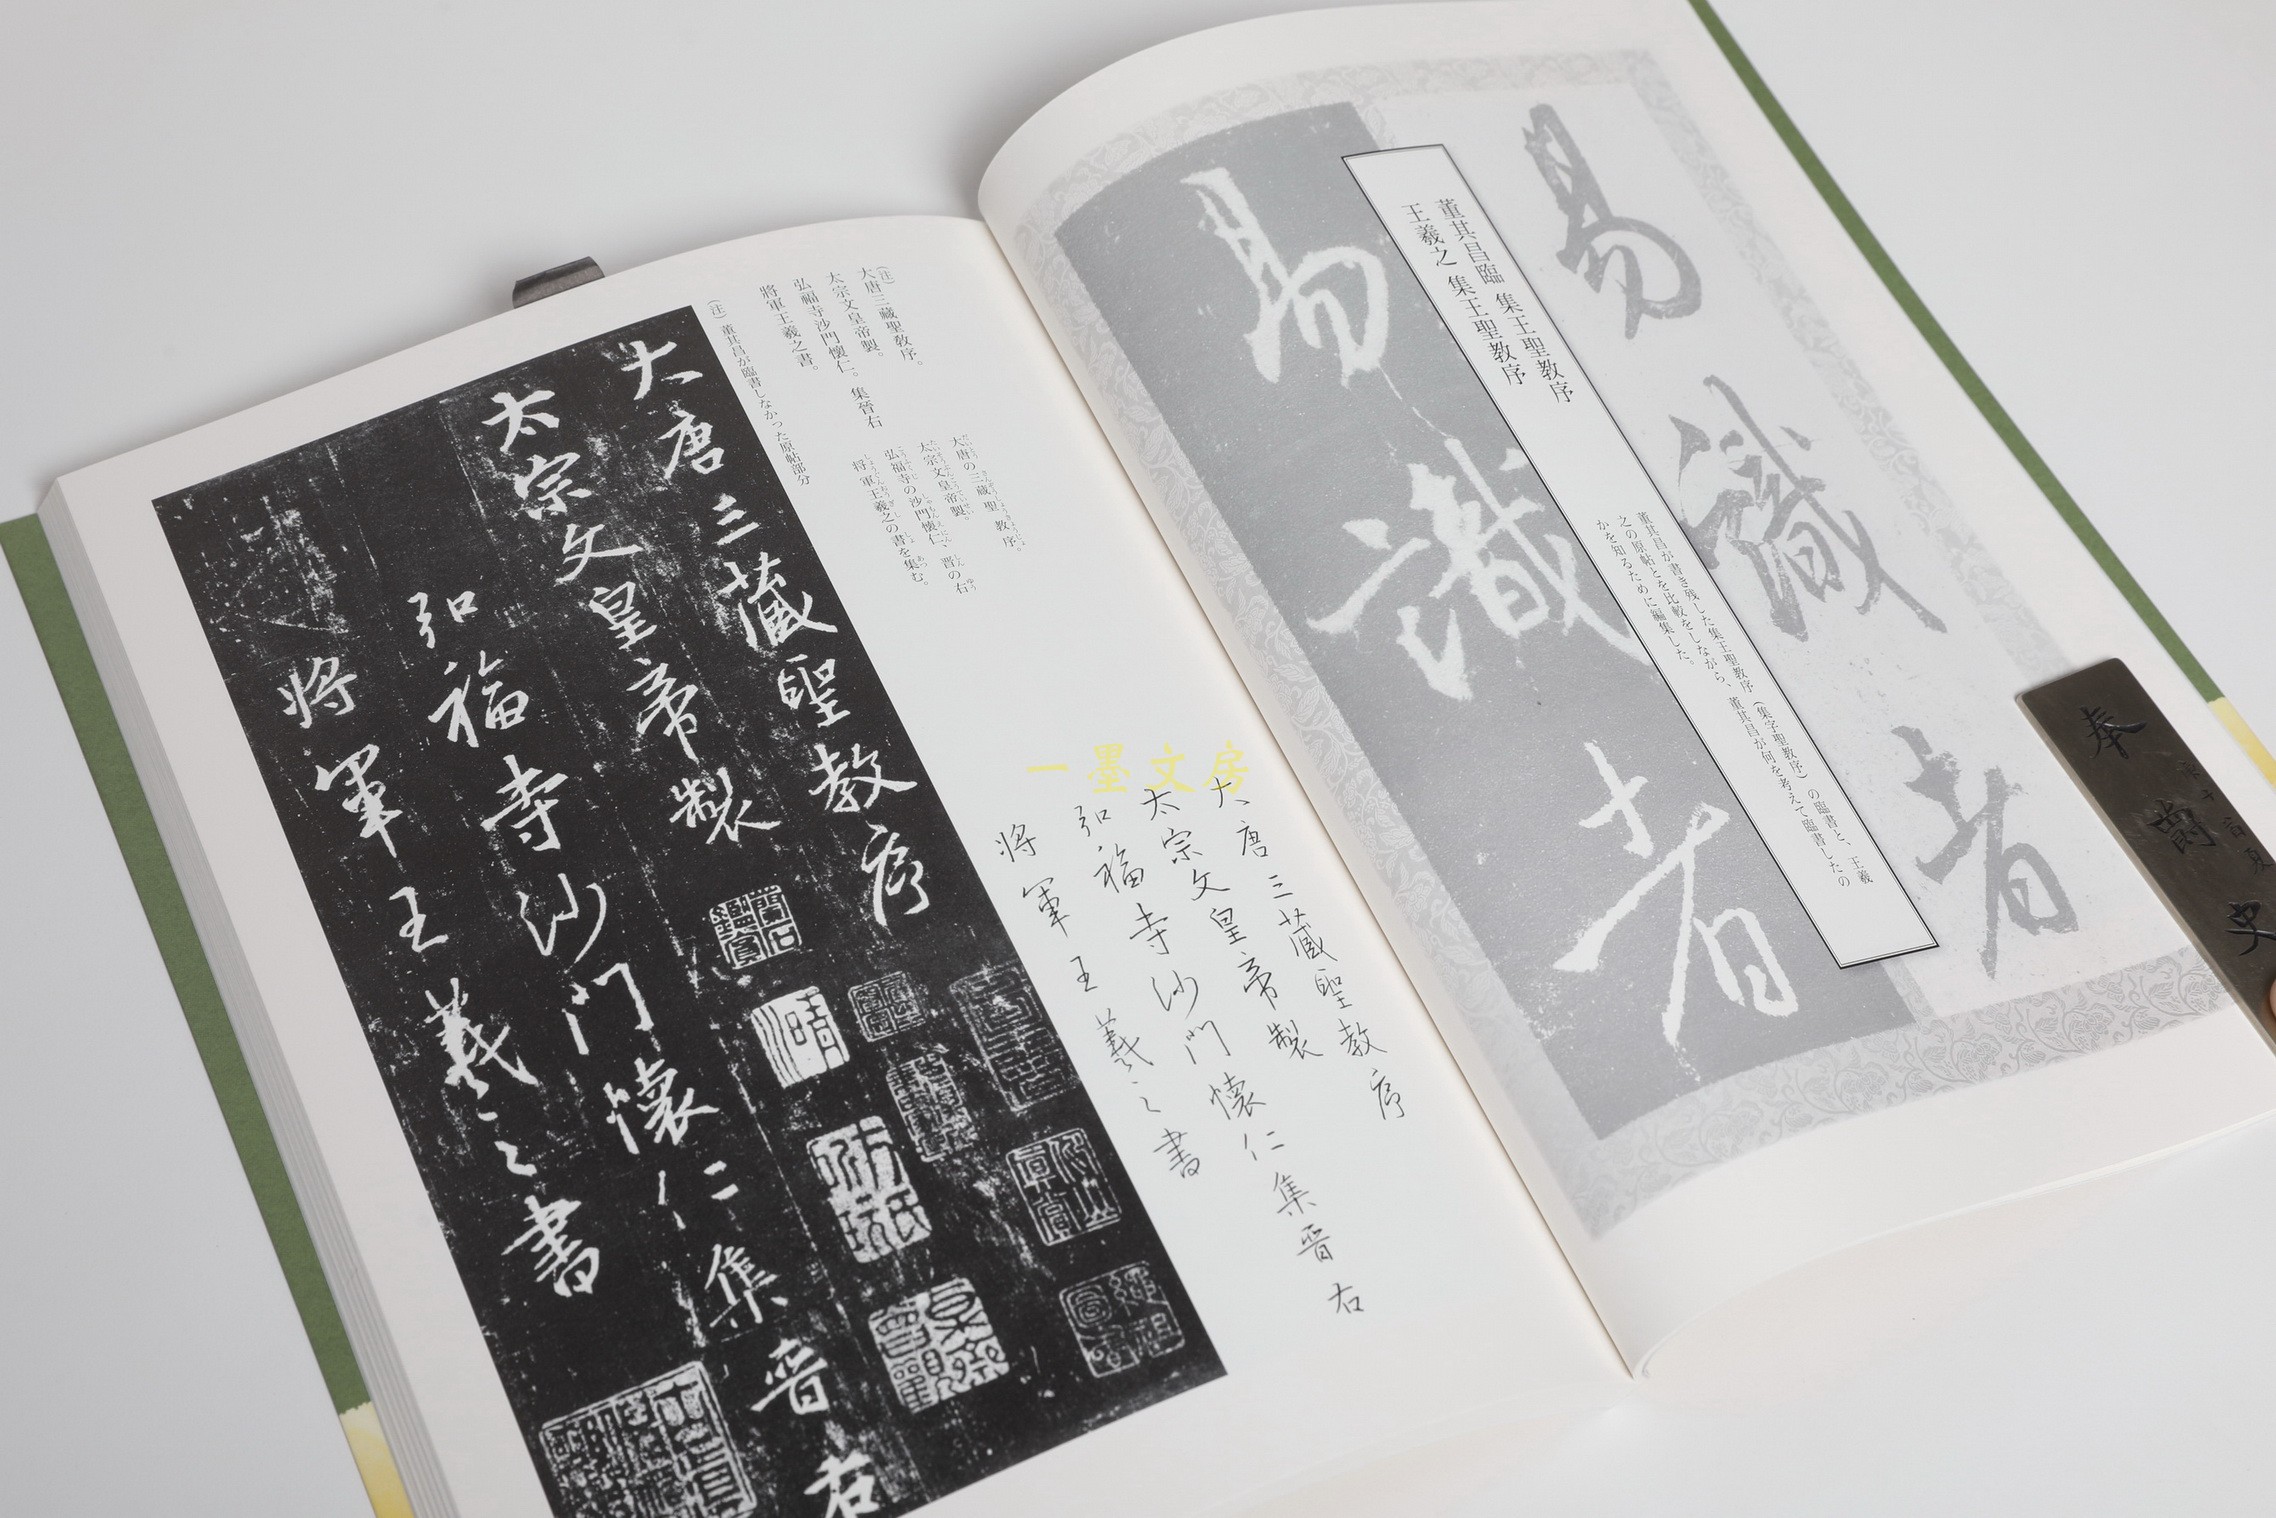 易識者
易識者
董其昌臨 集王聖教序
王羲之 集王聖教序
董其昌が書き残した集王聖教序(集字聖教序)の臨書と、王羲
之の原帖とを比較をしながら、董其昌が何を考えて臨書したの
かを知るために編集した。
(注)
大唐三藏聖教序。
太宗文皇帝製。
弘福寺沙門懐仁。集晉右
將軍王羲之書。
大唐の三蔵聖教序。
太宗文皇帝製。
弘福寺の沙門懐仁、晋の右
将軍王羲之の書を集む。
(注) 董其昌が臨書しなかった原帖部分
大唐三藏聖教序
太宗文皇帝製
弘福寺沙門懷仁集晉右
將軍王羲之書
大唐三藏聖教序
太宗文皇帝製
弘福寺沙門懷仁集晉右
將軍王羲之書
一墨文房
奉爵史